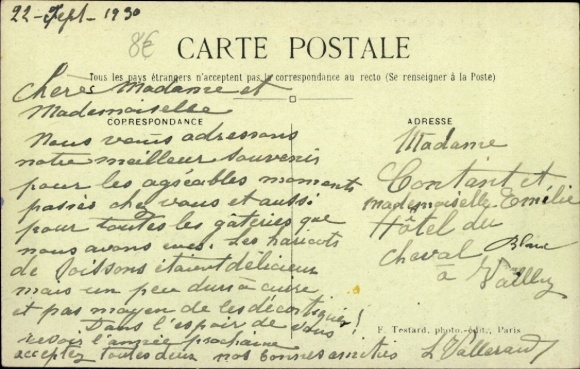 22 - Sept - 1930
8€
CARTE POSTALE
Tous les pays étrangers n'acceptent pas la correspondance au recto (Se renseigner à la Poste)
CORRESPONDANCE
ADRESSE
Chères Madame et
Mademoiselle
Nous vous adressons
notre meilleur souvenir
pour les agréables moments
passés chez vous et aussi
pour toutes les gâteries que
nous avons eues. Les haricots
de Soissons étaient délicieux
mais un peu durs à cuire
et pas moyen de les décortiquer !
Dans l'espoir de vous
revoir l'année prochaine
acceptez toutes deux nos bonnes amitiés
Madame
Contant et
mademoiselle Emilie
Hôtel du
Cheval Blanc
à Vallery
F. Testard, photo.-édit., Paris